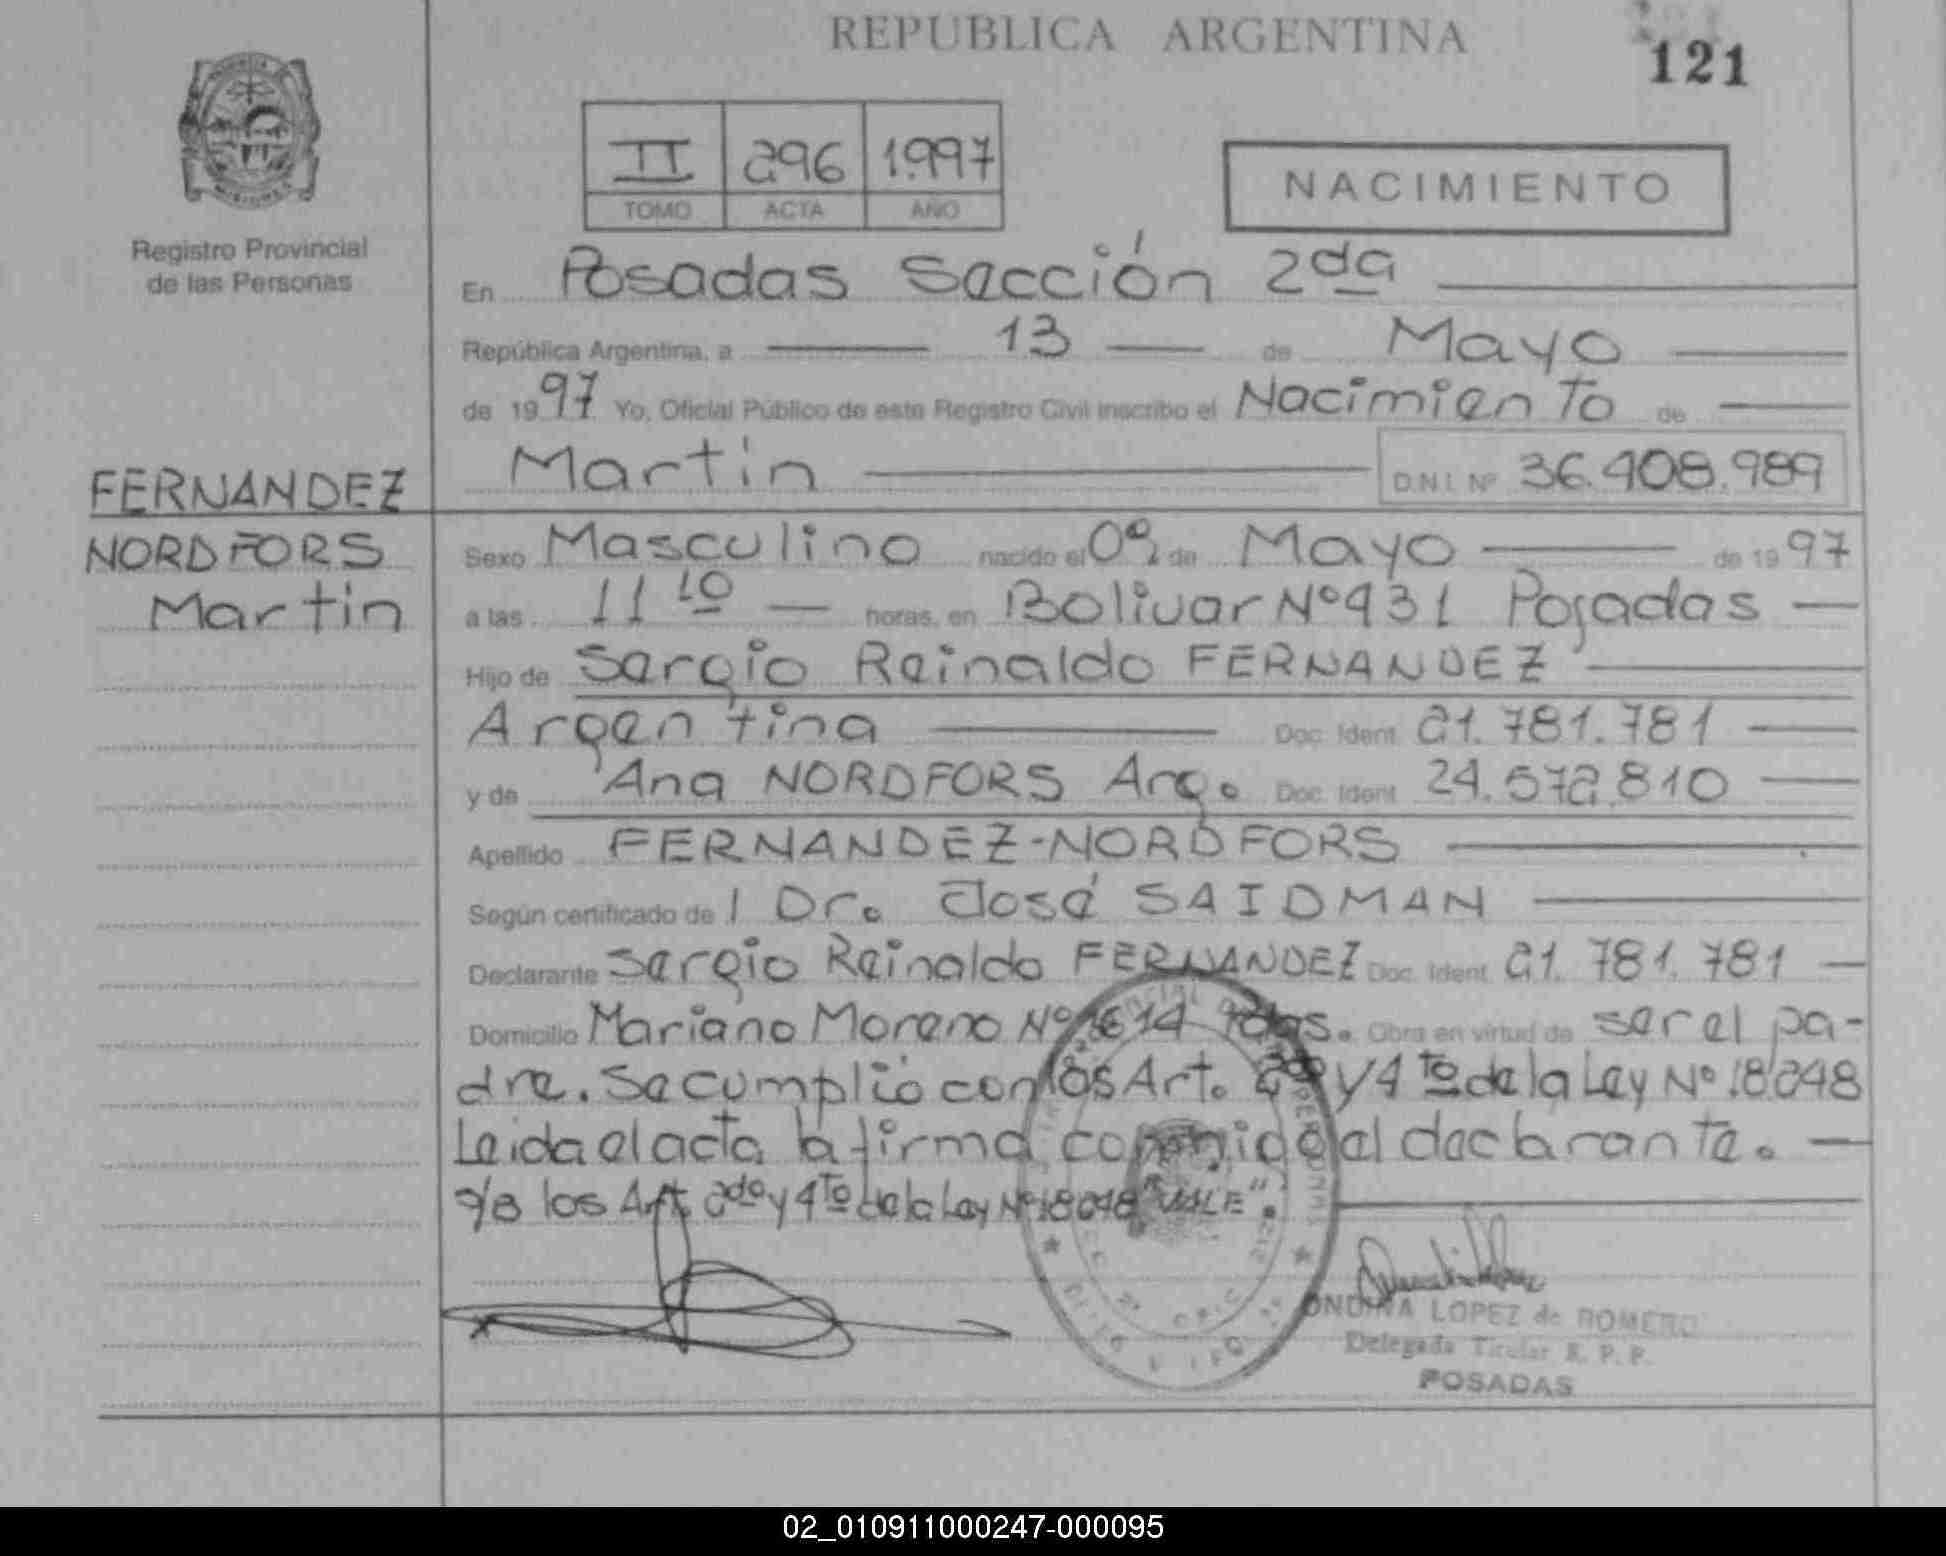 REPUBLICA ARGENTINA
121
II 296 1.997
TOMO ACTA AÑO
NACIMIENTO
Registro Provincial
de las Personas
En Posadas Sección 2da
República Argentina, a 13 de Mayo
de 1997 Yo, Oficial Público de este Registro Civil inscribo el Nacimiento de
Martin D.N.I. Nº 36.408.989
FERNANDEZ
NORDFORS
Martin
Sexo Masculino nacido el 02 de Mayo de 1997
a las 11 10 horas, en Bolivar Nº 431 Posadas
Hijo de Sergio Reinaldo FERNANDEZ
Argentina Doc. Ident. 21.781.781
y de Ana NORDFORS Arg. Doc. Ident. 24.572.810
Apellido FERNANDEZ-NORDFORS
Según certificado de l Dr. José SAIDMAN
Declarante Sergio Reinaldo FERNANDEZ Doc. Ident. 21.781.781
Domicilio Mariano Moreno Nº Pdas. Obra en virtud de ser el pa-
dre. Se cumplió con los Art. 2do y 4to de la Ley Nº 18248
Leida el acta la firma conmigo el declarante.
los Art. 2do y 4to de la Ley Nº 18248 "VALE".
ONDINA LOPEZ de ROMERO
Delegada Titular R. P. P.
POSADAS
02_010911000247-000095